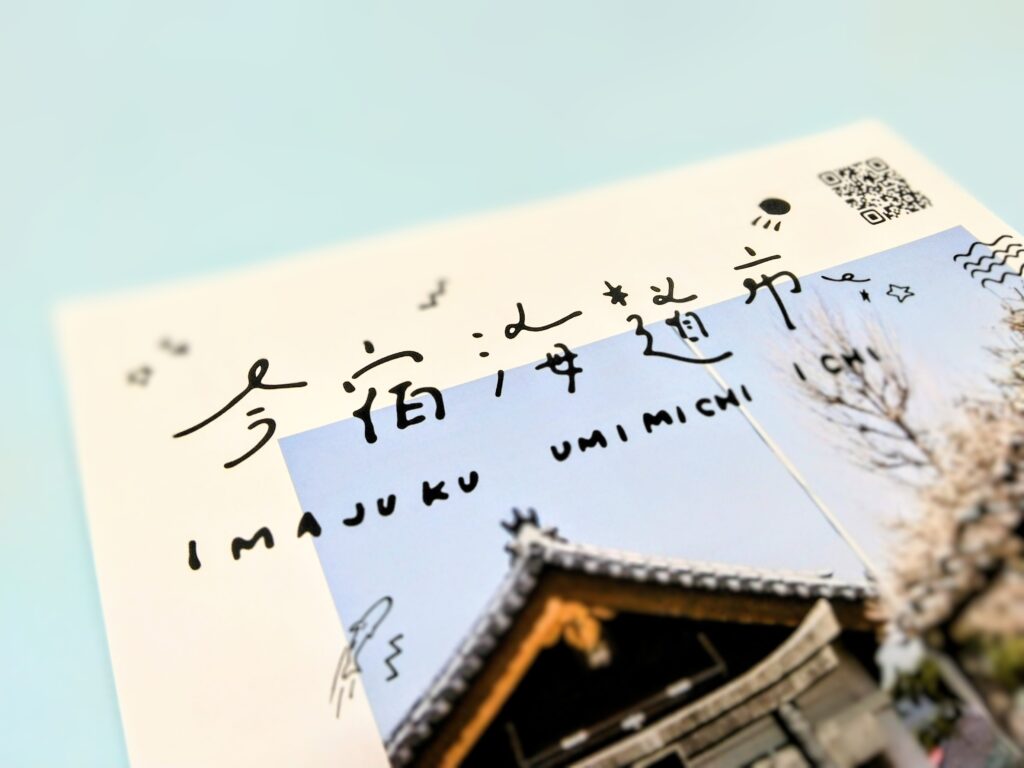 今宿海道市
IMAJUKU UMIMICHI ICHI